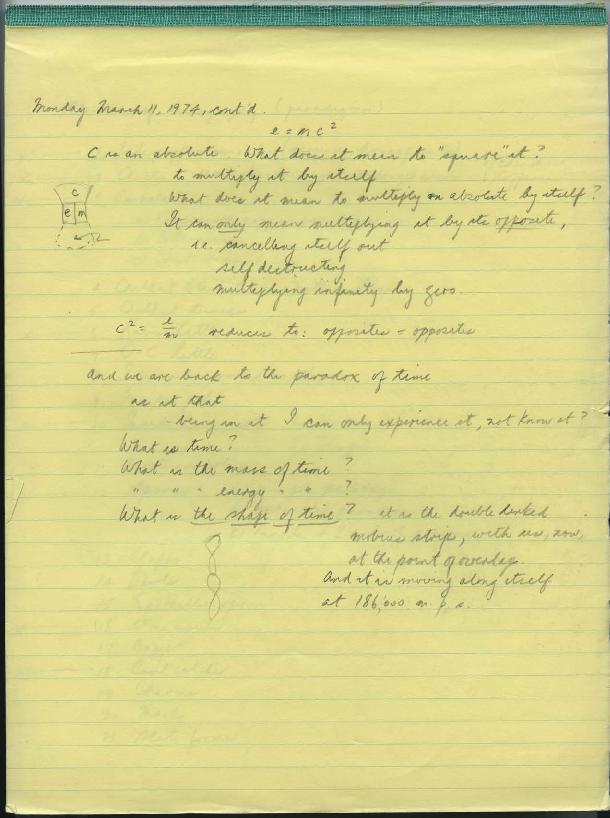 Monday March 11, 1974, cont'd. (paradigms)
e = m c²
C is an absolute. What does it mean to "square" it?
to multiply it by itself
What does it mean to multiply an absolute by itself?
It can only mean multiplying it by its opposite,
i.e. cancelling itself out
self destructing
multiplying infinity by zero.
c
e m
c² = e/m reduces to: opposites = opposites
And we are back to the paradox of time
as it that
- being in it I can only experience it, not know it?
What is time?
What is the mass of time?
" " " energy " " ?
What is the shape of time? it is the double linked
mobius strip, with us, now,
at the point of overlap.
And it is moving along itself
at 186,000 m.p.s.